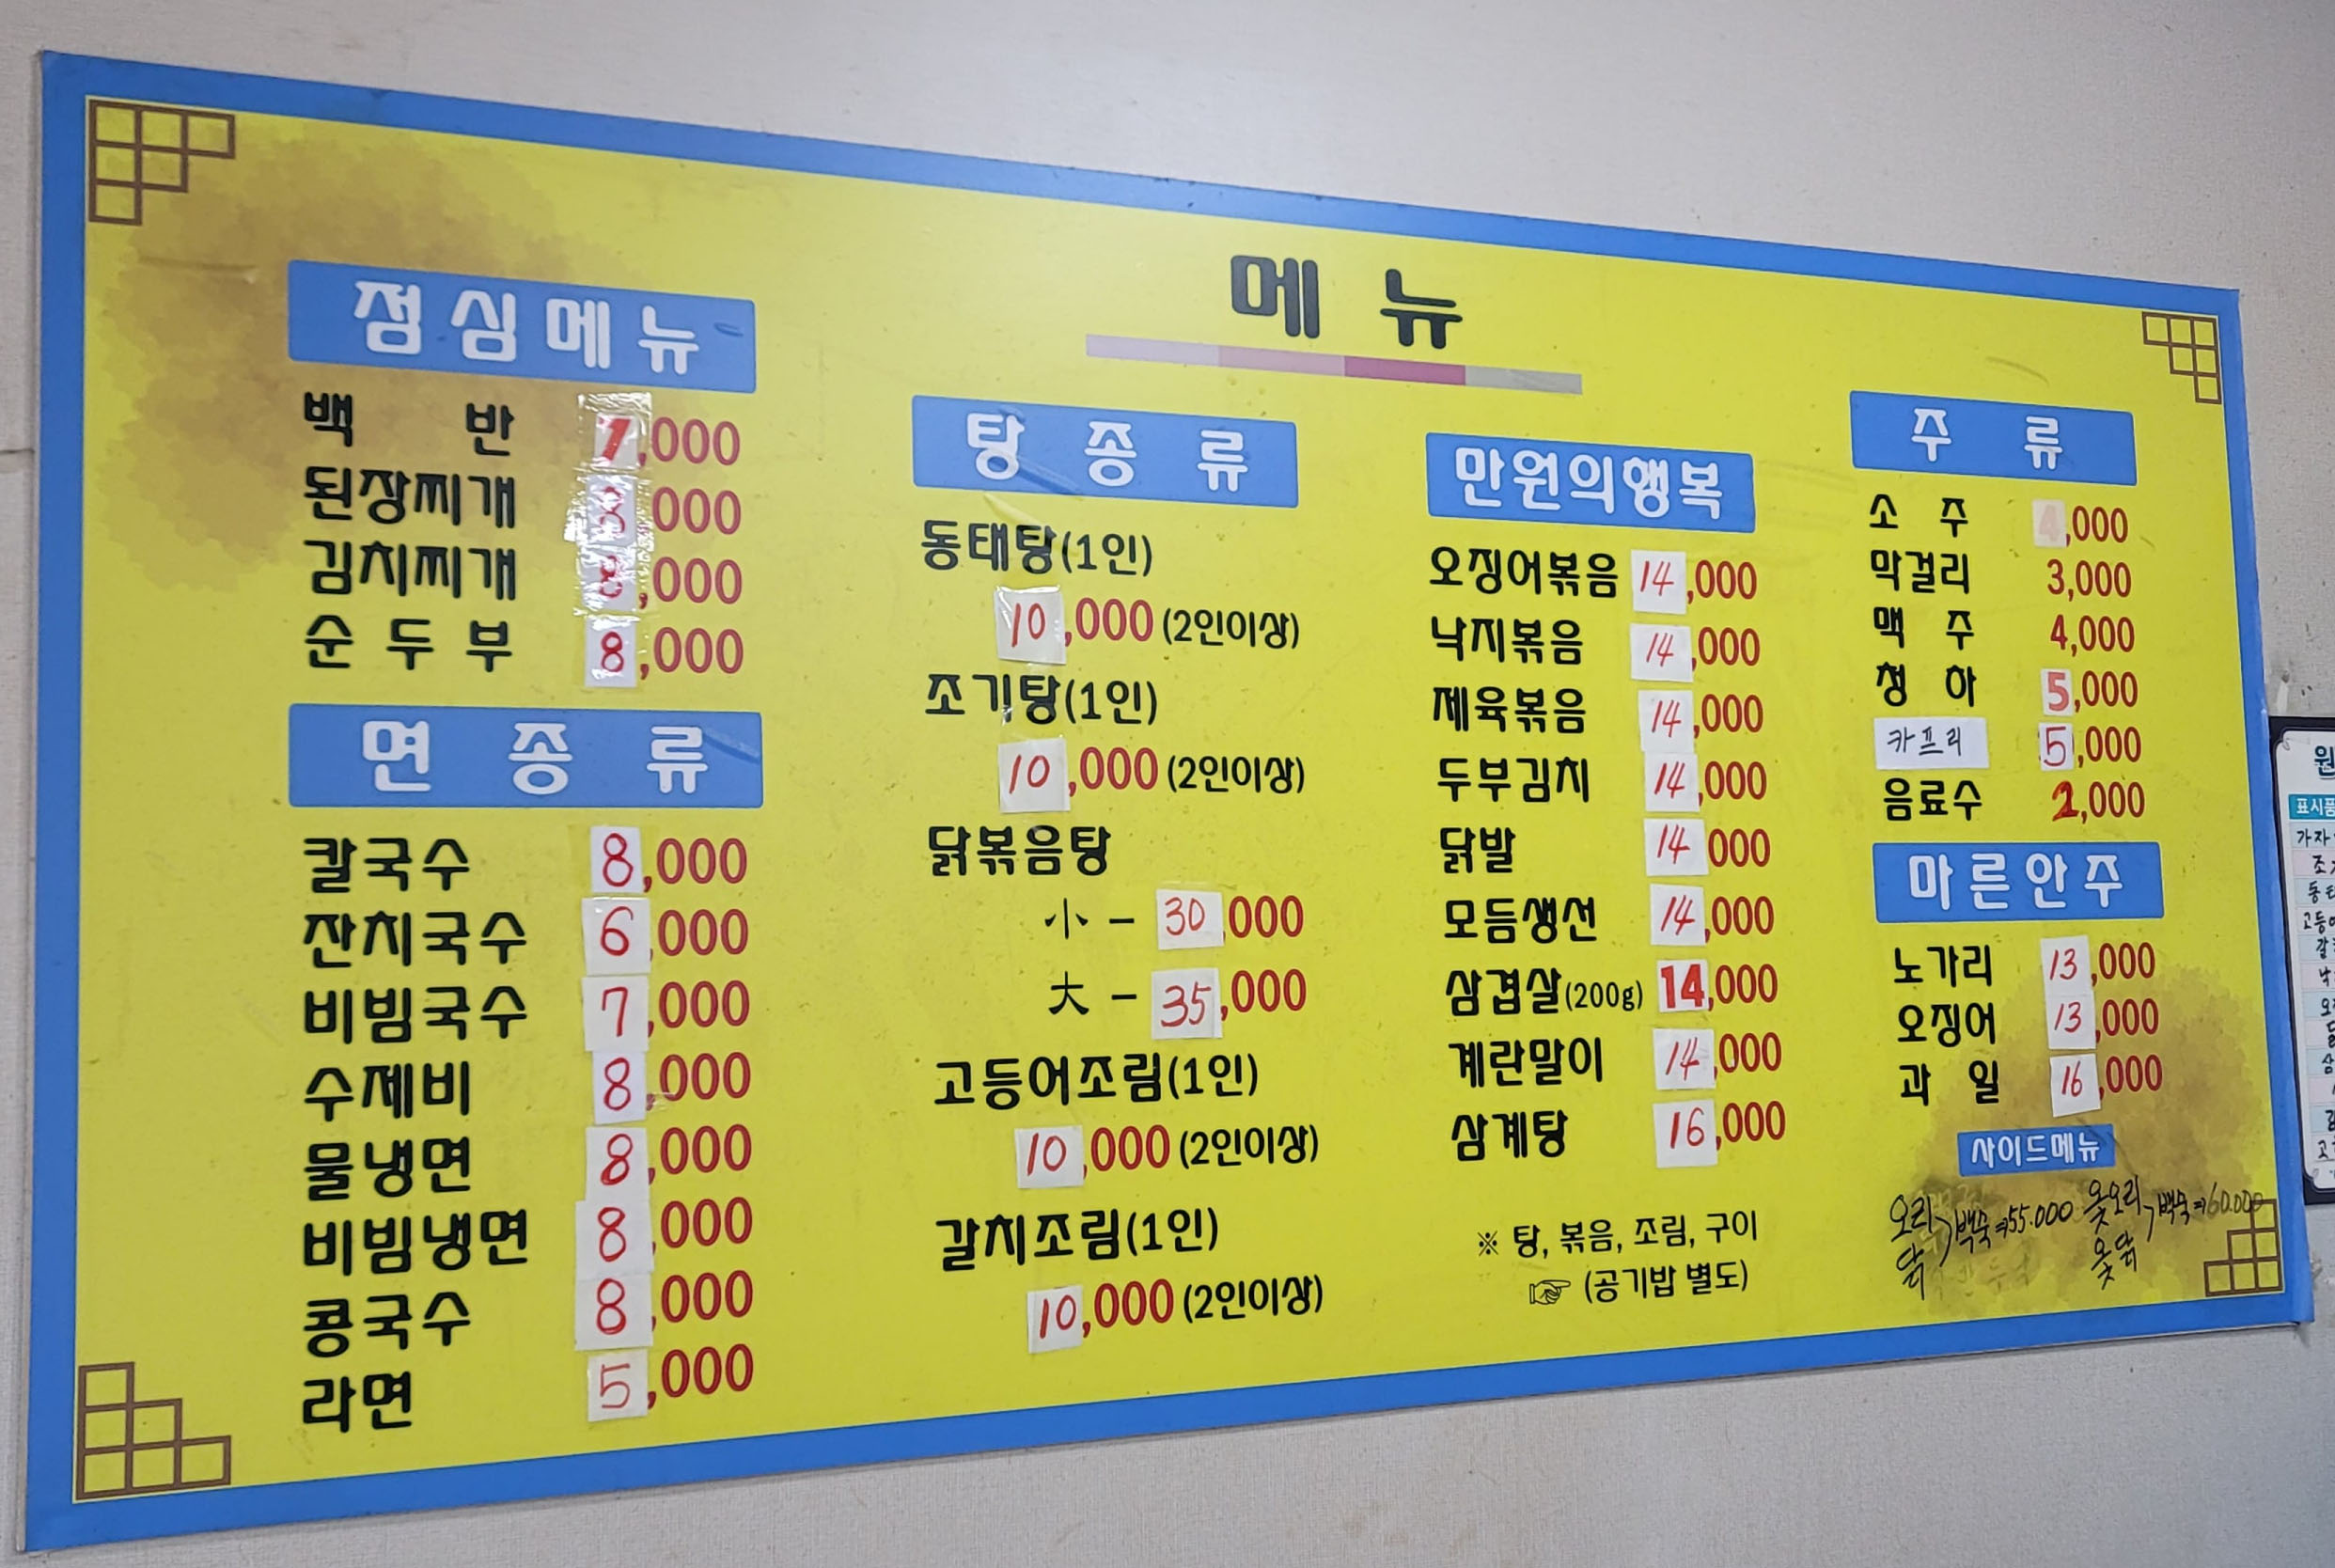 메뉴
점심메뉴
백반 7,000
된장찌개 8,000
김치찌개 8,000
순두부 8,000
면종류
칼국수 8,000
잔치국수 6,000
비빔국수 7,000
수제비 8,000
물냉면 8,000
비빔냉면 8,000
콩국수 8,000
라면 5,000
탕종류
동태탕(1인)
10,000 (2인이상)
조기탕(1인)
10,000 (2인이상)
닭볶음탕
小 - 30,000
大 - 35,000
고등어조림(1인)
10,000 (2인이상)
갈치조림(1인)
10,000 (2인이상)
만원의행복
오징어볶음 14,000
낙지볶음 14,000
제육볶음 14,000
두부김치 14,000
닭발 14 000
모듬생선 14,000
삼겹살(200g) 14,000
계란말이 14,000
삼계탕 16,000
※ 탕, 볶음, 조림, 구이
☞ (공기밥 별도)
주류
소주 4,000
막걸리 3,000
맥주 4,000
청하 5,000
카프리 5,000
음료수 2,000
마른안주
노가리 13,000
오징어 13,000
과일 16,000
사이드메뉴
오리 닭 > 백숙 ⇒ 55.000 옻오리 옻닭 > 백숙 ⇒ 60.000